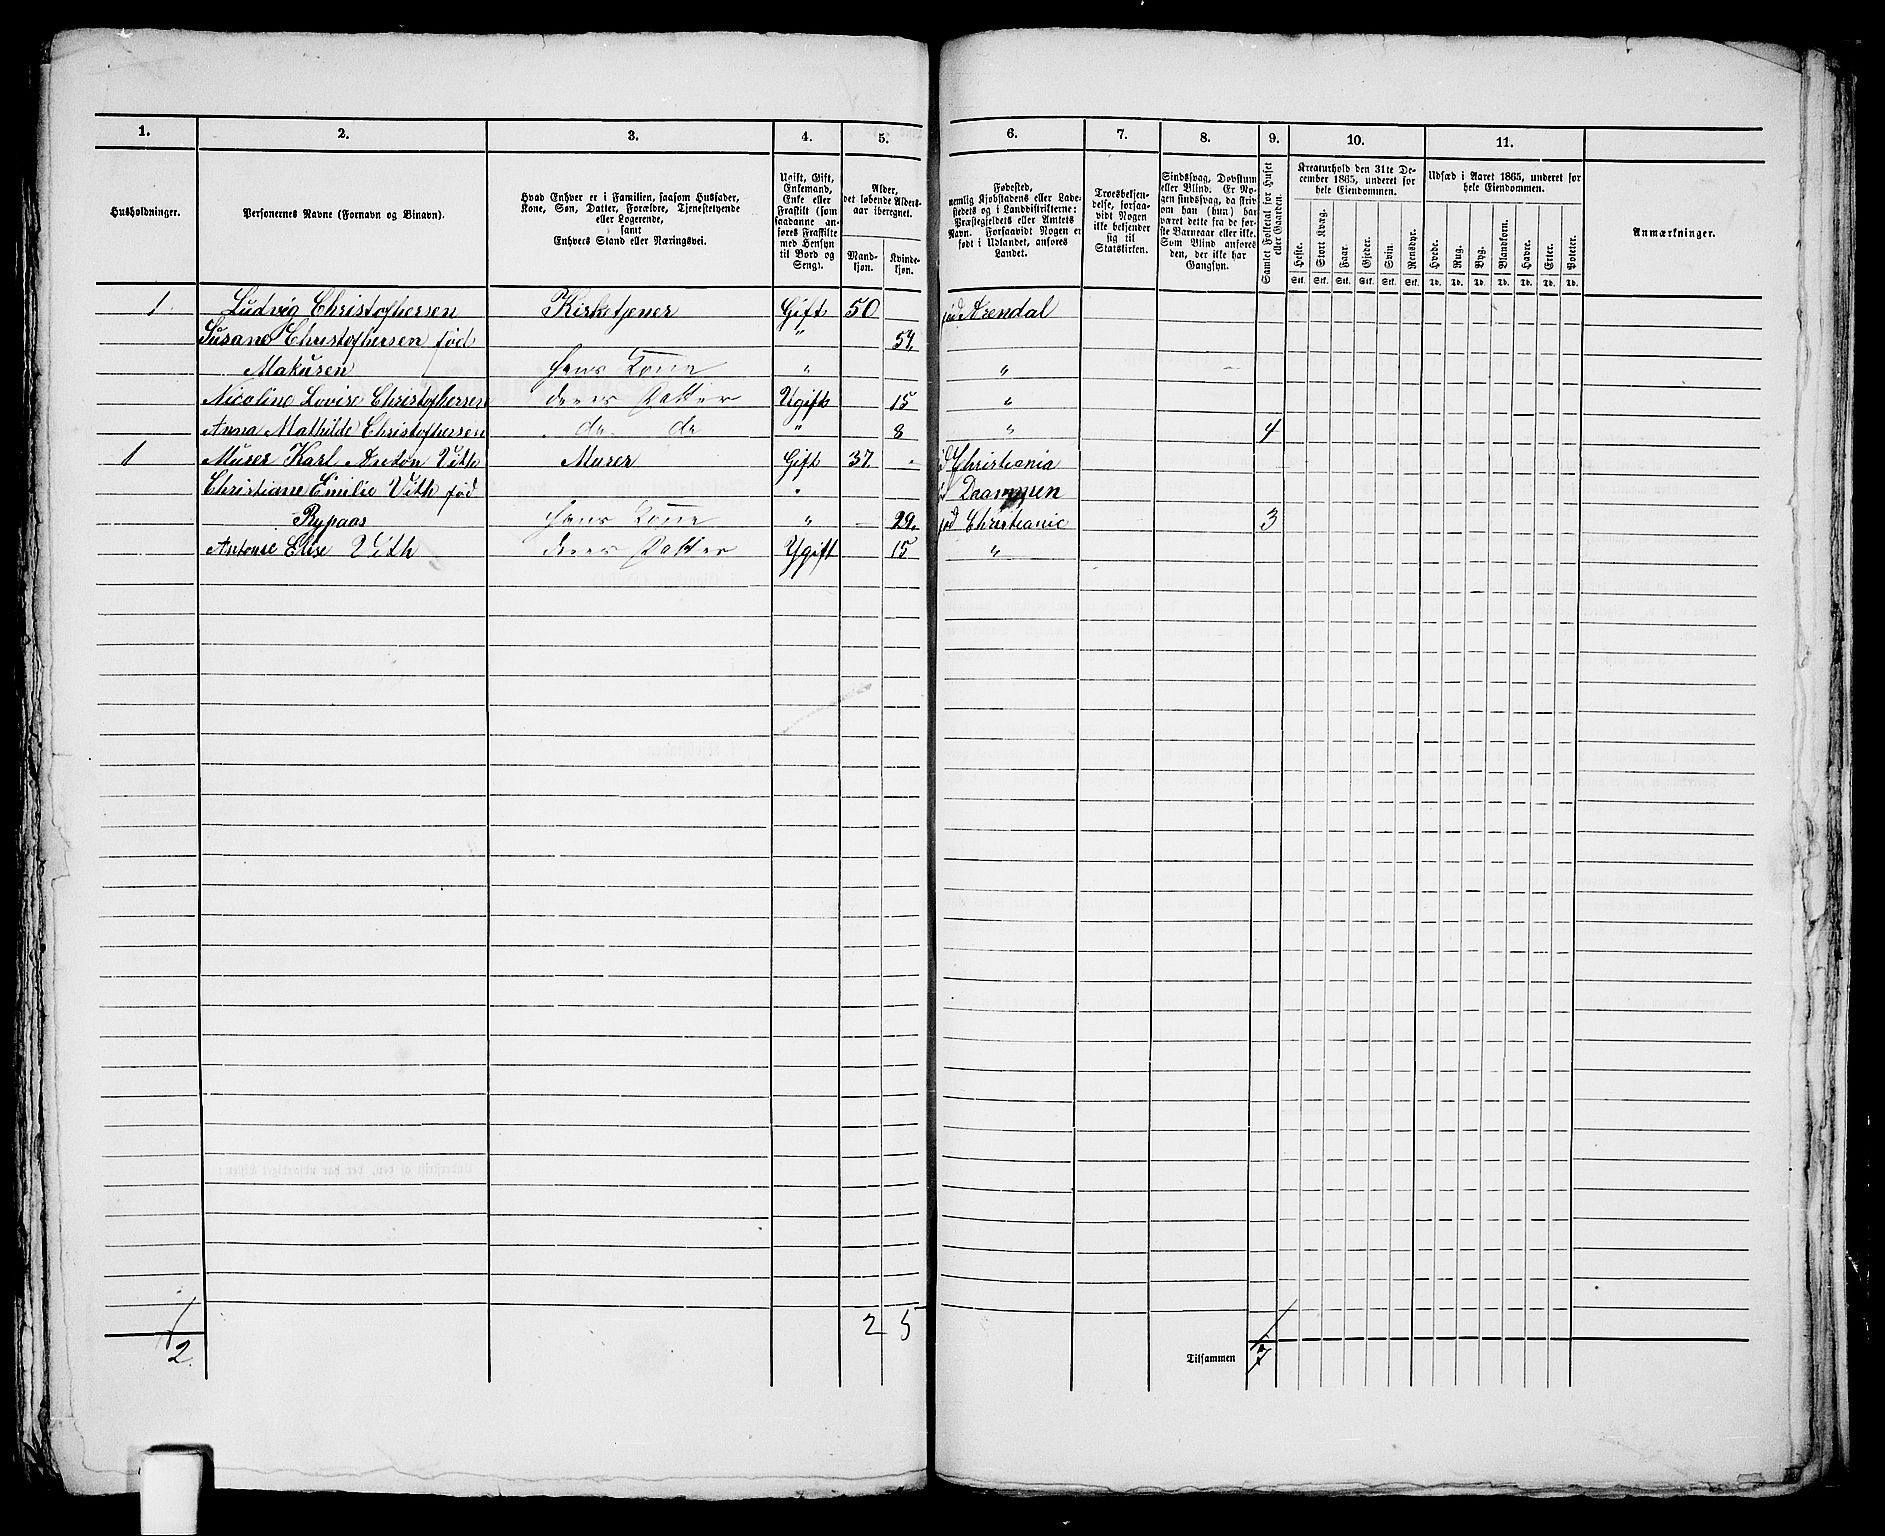 1. 2. 3. 4. 5. 6. 7. 8. 9. 10. 11.
Husholdninger.
Personernes Navne (Fornavn og Binavn).
Hvad Enhver er i Familien, saasom Husfader,
Kone, Søn, Datter, Forældre, Tjenestetyende
eller Logerende,
samt
Enhvers Stand eller Næringsvei.
Ugift, Gift,
Enkemand,
Enke eller
Fraskilt (som
saadanne an-
føres Fraskilte
med Hensyn
til Bord og
Seng).
Alder,
det løbende Alders-
aar iberegnet.
Mand-
kjøn.
Kvinde-
kjøn.
Fødested,
nemlig Kjøbstadens eller Lade-
stedets og i Landdistrikterne:
Præstegjeldets eller Amtets
Navn. Forsaavidt Nogen er
født i Udlandet, anføres
Landet.
Troesbekjen-
delse, forsaa-
vidt Nogen
ikke bekjender
sig til
Statskirken.
Sindssvag, Døvstum
eller Blind. Er No-
gen sindssvag, da skriv
om han (hun) har
været dette fra de før-
ste Barneaar eller ikke.
Som Blind anføres
den, der ikke har
Gangsyn.
Samlet Folketal for Huset
eller Gaarden.
Kreaturhold den 31te De-
cember 1865, underet for
hele Eiendommen.
Heste. Stort Kvæg. Faar. Gjeder. Svin. Rensdyr.
Stk. Stk. Stk. Stk. Stk. Stk.
Udsæd i Aaret 1865, underet for
hele Eiendommen.
Hvede. Rug. Byg. Blandkorn. Havre. Erter. Poteter.
Td. Td. Td. Td. Td. Td. Td.
Anmærkninger.
1 Ludvig Christophersen Kirketjener Gift 50 Arendal
Susane Christophersen fød " 54
Makusen Hans Kone " "
Nicoline Lovise Christophersen deres Datter Ugift 15 "
Anna Mathilde Christophersen do do " 8 " 4
1 Murer Karl Anton Vith Murer Gift 37 Christiania
Christiane Emilie Vith fød "
Rypaas Hans Kone " 29. Christianie 3
Antonie Elise Vith deres Datter Ugift 15 "
2 2 5 Tilsammen 7